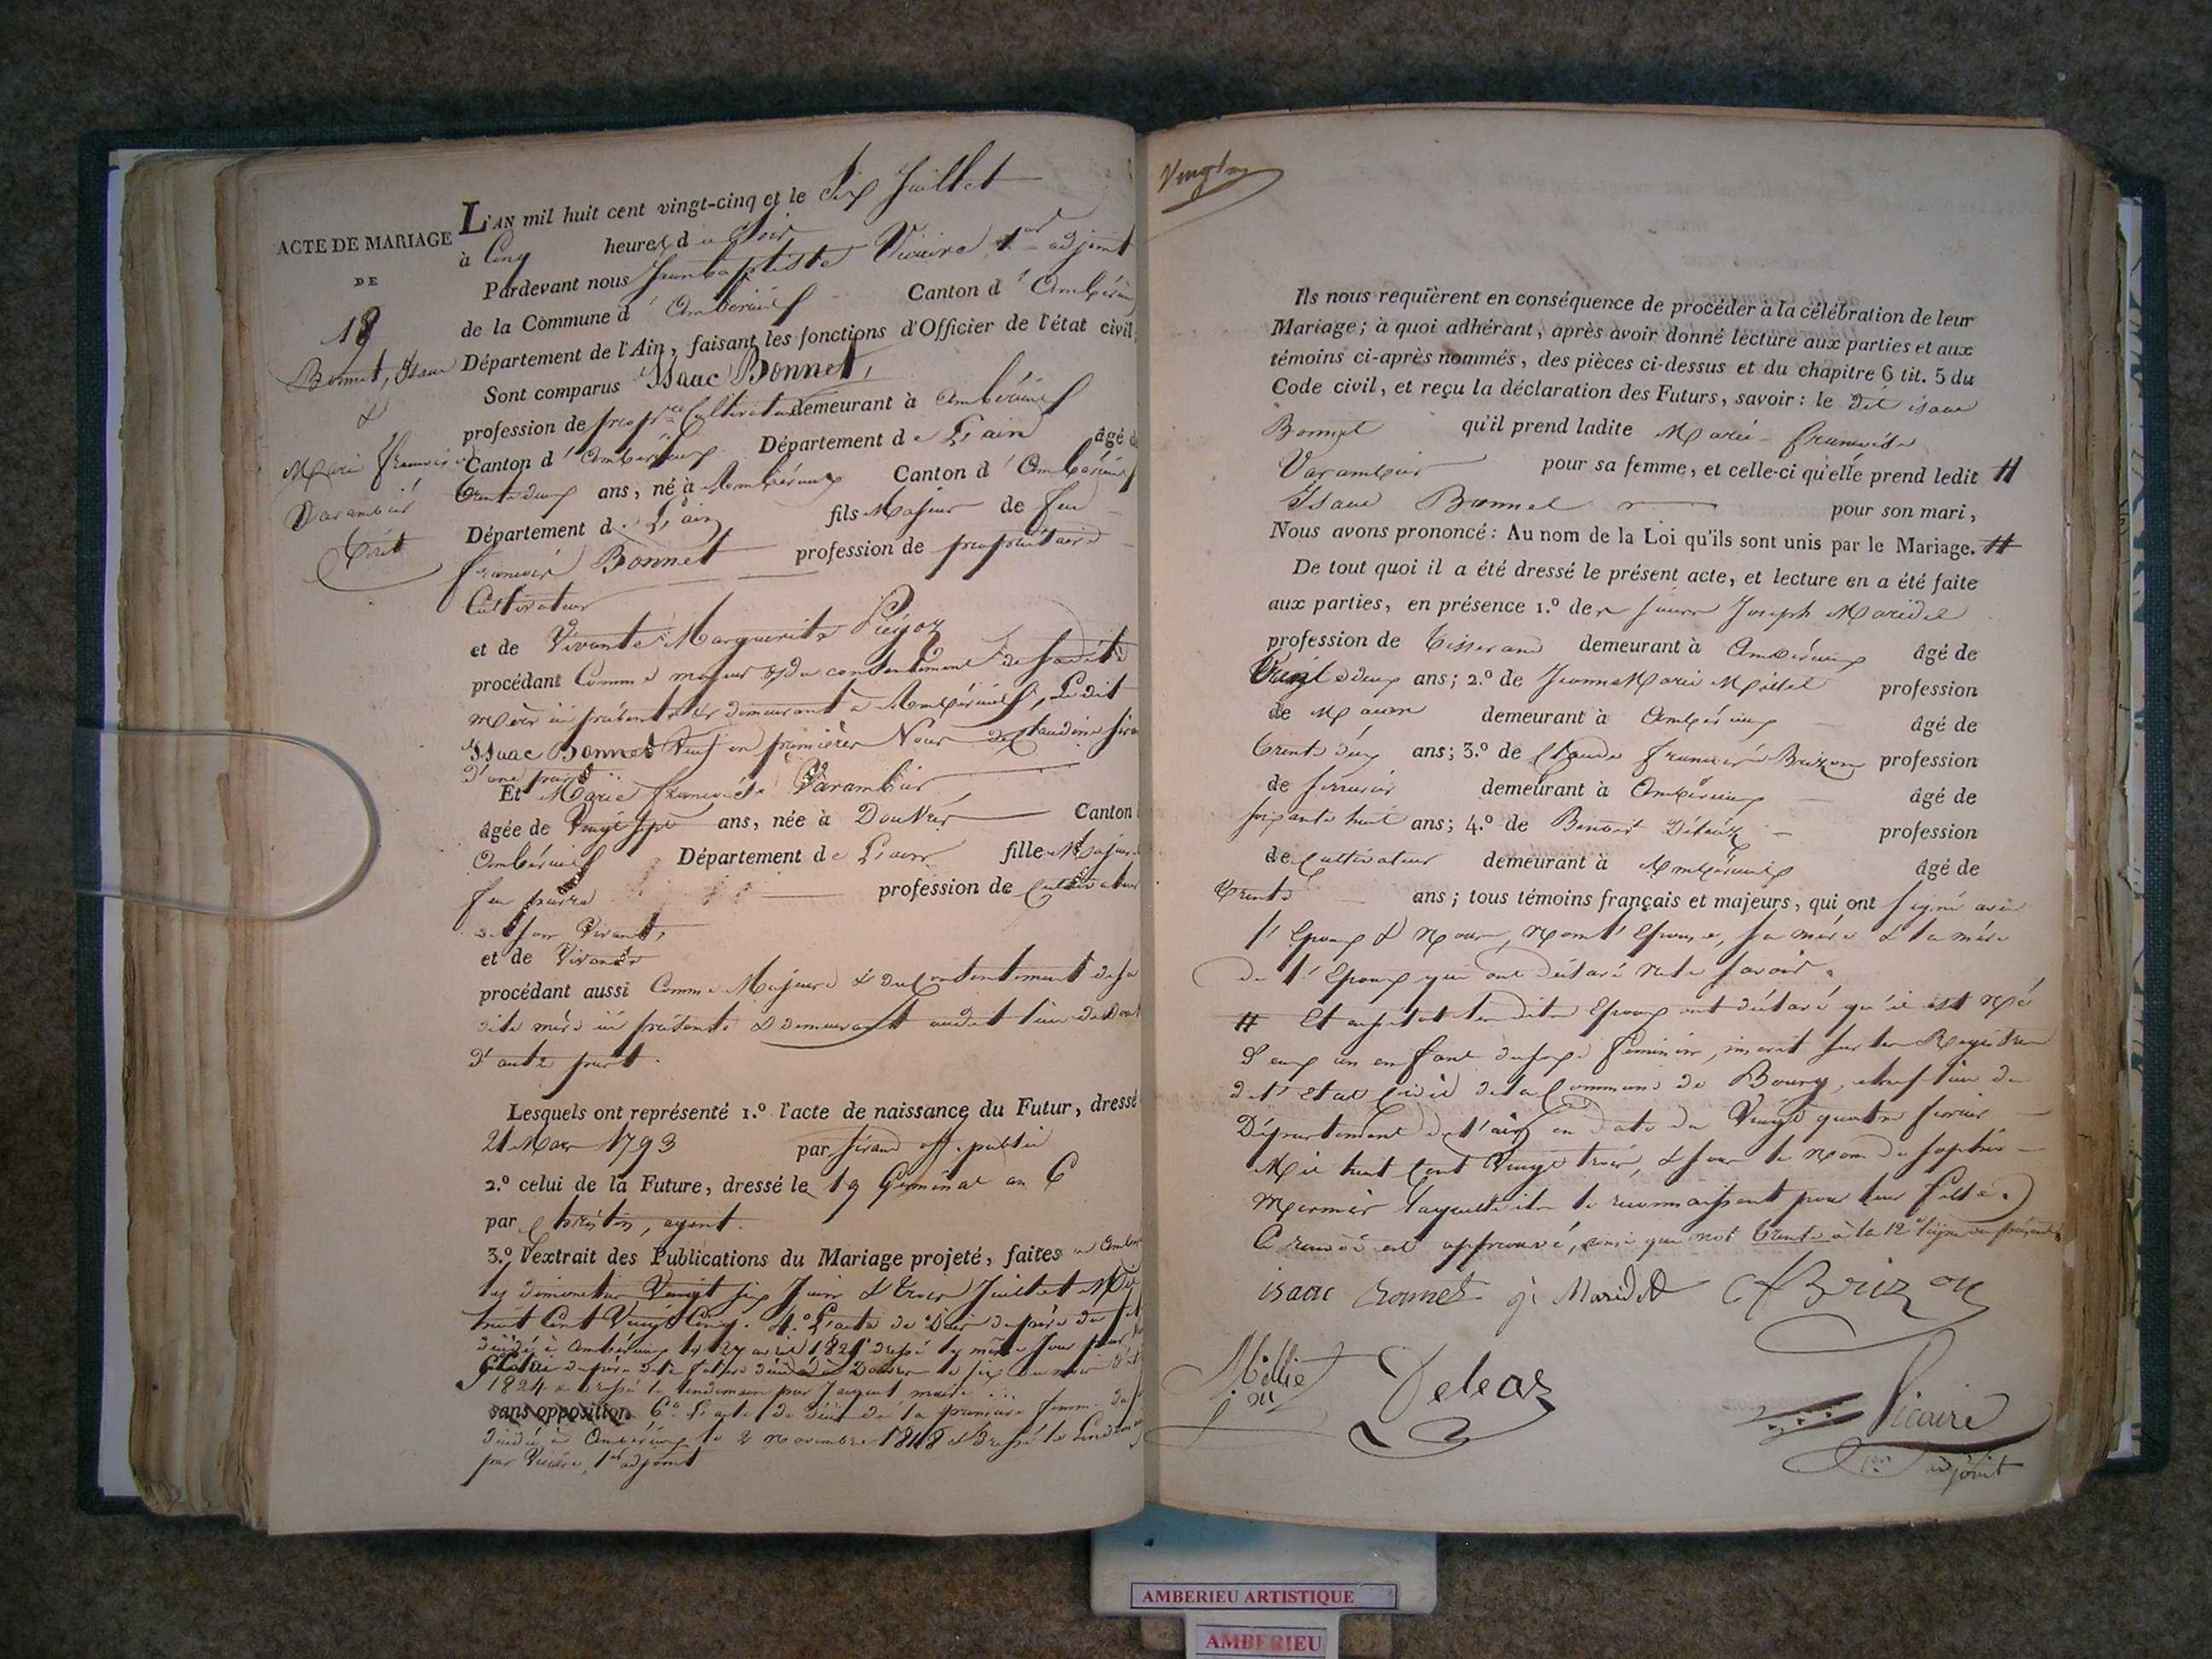 L'AN mil huit cent vingt-cinq et le Six Juillet
à Cinq heures du Soir
Pardevant nous Jeanbaptiste Vicaire, 1er adjoint
de la Commune d'Ambérieux Canton d'Ambérieux
Département de l'Ain, faisant les fonctions d'Officier de l'état civil,
Sont comparus Isaac Bonnet,
profession de propre Cultivateur demeurant à Ambérieux
Canton d'Ambérieux Département de L'ain âgé de
trente deux ans, né à Ambérieux Canton d'Ambérieux
Département de L'ain fils Majeur de feu
françois Bonnet profession de propriétaire
Cultivateur
et de Vivante Marguerite
procédant Comme majeur & du consentement de sadite
mère ici présente & demeurant à Ambérieux, Ledit
Isaac Bonnet Veuf en premières Noces de Claudine
d'une part
Et Marie françoise Varambier
âgée de Vingt sept ans, née à Douvres Canton
Ambérieux Département de L'ain fille Majeure
feu pierre profession de Cultivateur
Vivant,
et de Vivante
procédant aussi Comme Majeure & du Consentement de sa
dite mère ici présente & demeurant audit lieu de
d'autre part.
Lesquels ont représenté 1.º l'acte de naissance du Futur, dressé
21 Mars 1793 par off. public
2.º celui de la Future, dressé le 19 Germinal an 6
par Chrétin, agent.
3.º l'extrait des Publications du Mariage projeté, faites à
les dimanches Vingt six Juin & trois Juillet Mil
huit Cent Vingt Cinq. 4.º L'acte de Décès du père du
décédé à Ambérieux le 27 avril 1821 dressé le même Jour par
Celui du père de la future décédé à Douvres le six du mois
1824 & dressé le lendemain par maire
sans opposition 6.º L'acte de Décès de la première femme du
décédée à Ambérieux le 2 Novembre 1818 & Dressé le Lendemain
par Vicaire, 1er adjoint
ACTE DE MARIAGE
DE
18
Bonnet, Isaac
&
Marie françoise
Varambier
Vingt
Ils nous requièrent en conséquence de procéder à la célébration de leur
Mariage; à quoi adhérant, après avoir donné lecture aux parties et aux
témoins ci-après nommés, des pièces ci-dessus et du chapitre 6 tit. 5 du
Code civil, et reçu la déclaration des Futurs, savoir: le dit isaac
Bonnet qu'il prend ladite Marie françoise
Varambier pour sa femme, et celle-ci qu'elle prend ledit #
Isaac Bonnet pour son mari,
Nous avons prononcé: Au nom de la Loi qu'ils sont unis par le Mariage. #
De tout quoi il a été dressé le présent acte, et lecture en a été faite
aux parties, en présence 1.º des sieurs Joseph Maridet
profession de tisserand demeurant à Ambérieux âgé de
Vingt deux ans; 2.º de Jeanne Marie Milliet profession
de Maçon demeurant à Ambérieux âgé de
trente deux ans; 3.º de Claude françois Brizon profession
de serrurier demeurant à Ambérieux âgé de
soixante huit ans; 4.º de Benoit Deléaz profession
de Cultivateur demeurant à Ambérieux âgé de
trente ans; tous témoins français et majeurs, qui ont signé avec
l'Epoux & Nous, Non l'épouse, sa mère & la mère
de l'Epoux qui ont déclaré ne le savoir.
# Et aussitôt lesdits Epoux ont déclaré qu'il est Né
d'eux un enfant du sexe féminin, inscrit sur les Registres
de l'Etat Civil de la Commune de Bourg, chef lieu du
Département de l'ain en date du Vingt quatre février
Mil huit Cent Vingt trois, & sous le Nom de
Mermier Laquelle ils le reconnaissent pour leur fille.
Ce renvoi est approuvé, ainsi que mot trente à la 12e ligne du présent
isaac bonnet j. Maridet Cf Brizon
Milliet
Deleaz
Vicaire
1er adjoint
AMBERIEU ARTISTIQUE
AMBERIEU